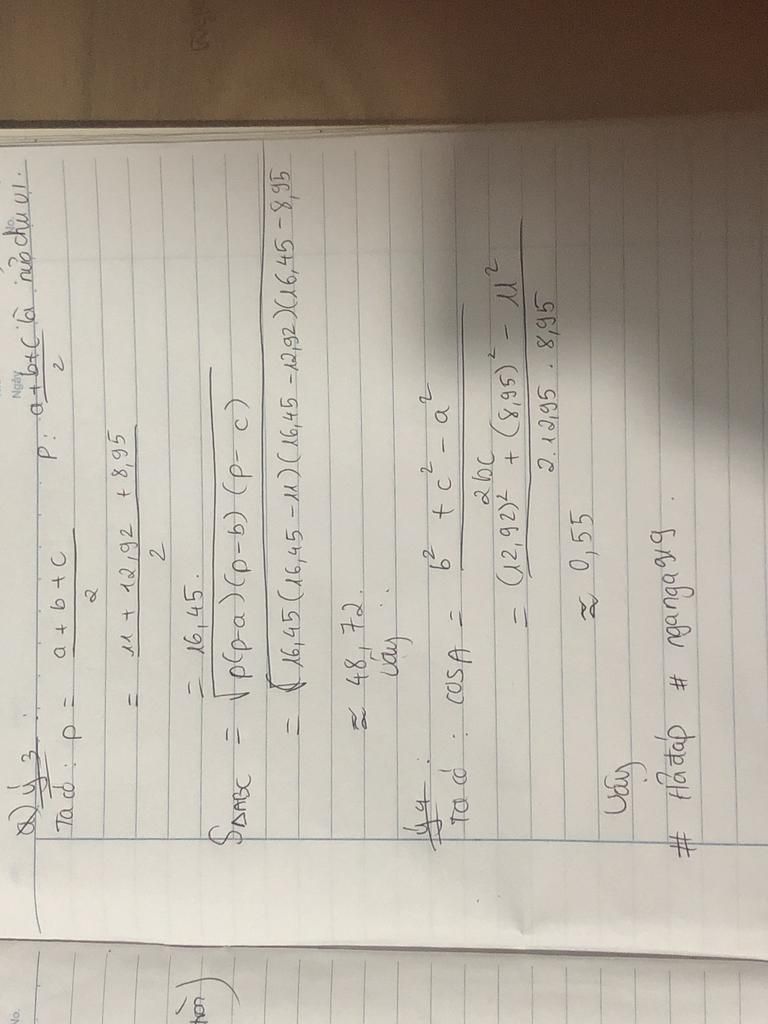 a) ý 3 :
Ta có : p = a + b + c / 2   p : a + b + c / 2 là nửa chu vi.
= 11 + 12,92 + 8,95 / 2
= 16,45.
S∆ABC = √p(p-a)(p-b)(p-c)
= √16,45(16,45-11)(16,45-12,92)(16,45-8,95
≈ 48,72.
Vậy ...
ý 4 :
Ta có : cosA = b² + c² - a² / 2bc
= (12,92)² + (8,95)² - 11² / 2.12,95 . 8,95
≈ 0,55
Vậy
# Hỏi đáp # ngangag19.
No.
Ngày
No.